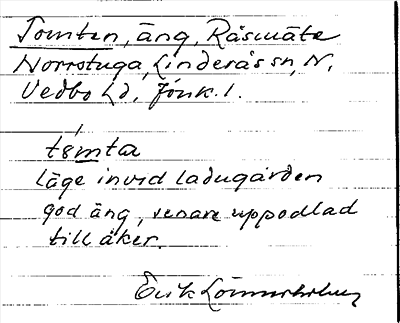 Tomten, äng, Råsmäte
Norrstuga, Linderås sn, N.
Vedbo hd, Jönk. l.
tomta
läge invid ladugården
god äng, senare uppodlad
till åker.
Erik